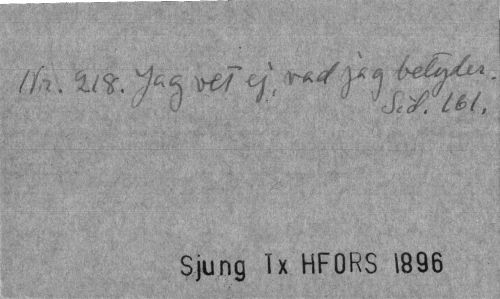 Nr. 218. Jag vet ej, vad jag betyder.
Sid. 161.
Sjung Tx HFORS 1896